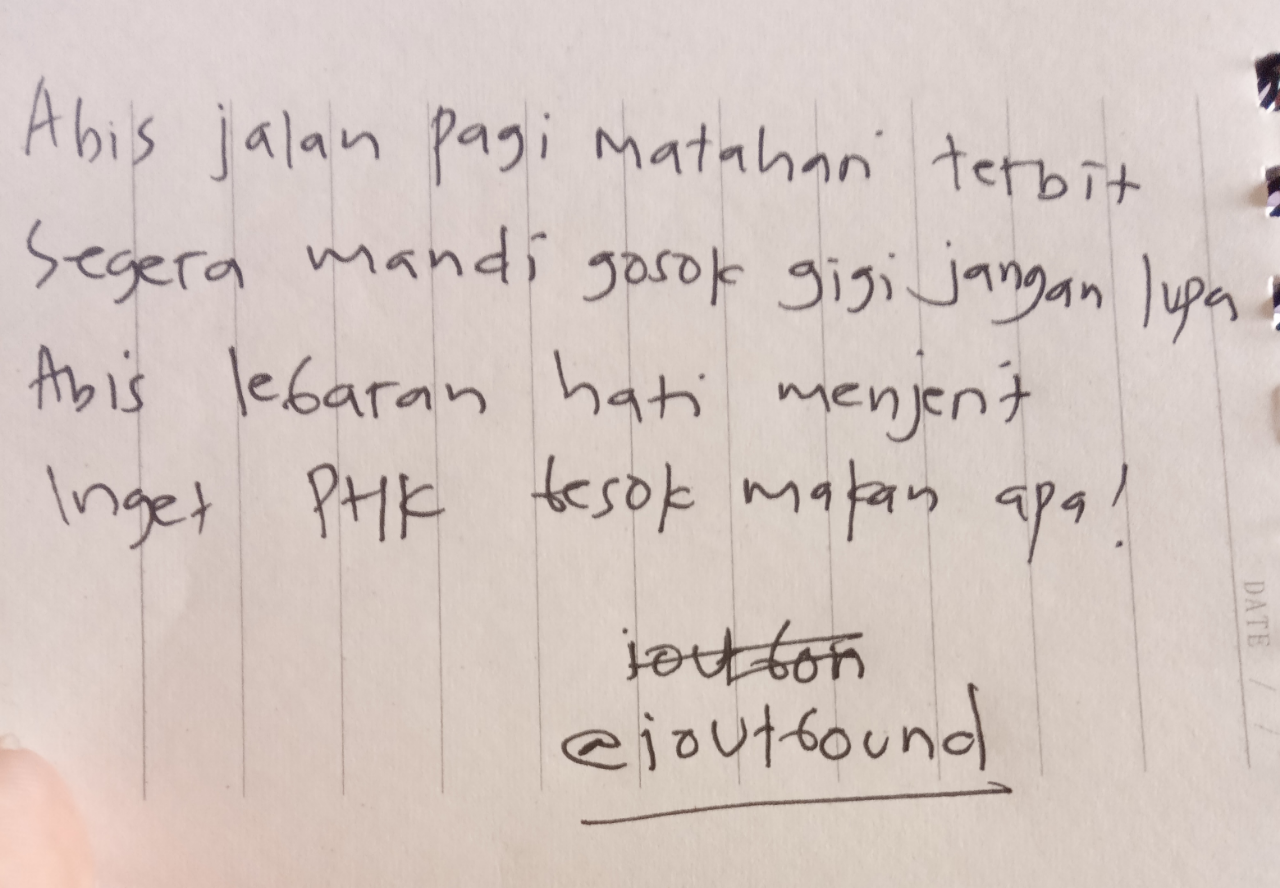 Abis jalan pagi matahari terbit
Segera mandi gosok gigi jangan lupa
Abis lebaran hati menjerit
Inget PHK besok makan apa!
ioutbon
@ioutbound
DATE / /